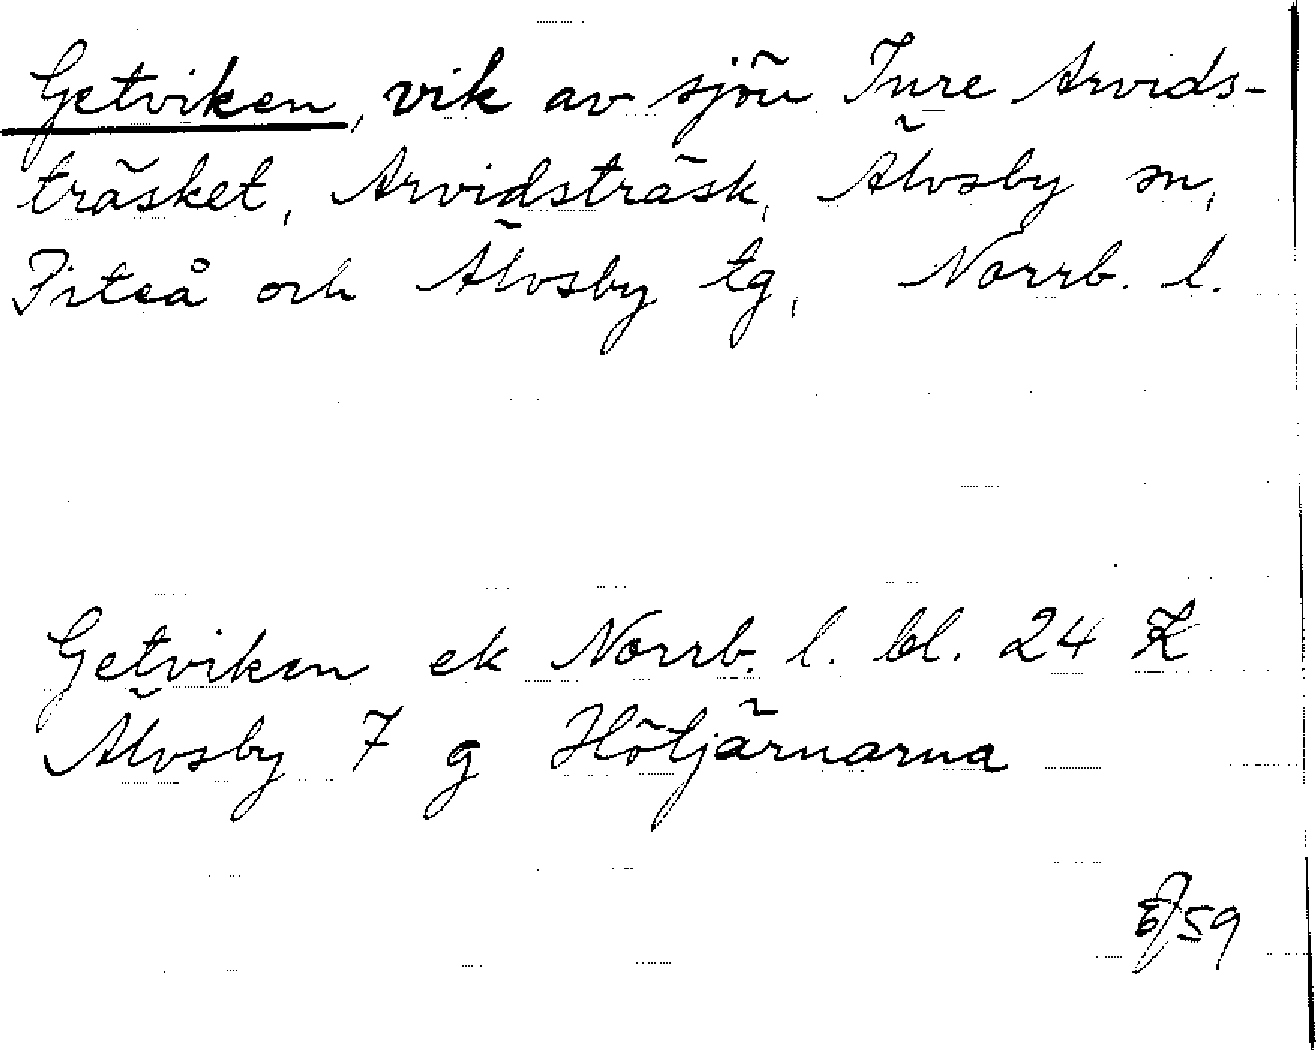 Getviken, vik av sjön Inre Arvids-
träsket, Arvidsträsk, Älvsby sn,
Piteå och Älvsby tg, Norrb. l.
Getviken ek Norrb. l. bl. 24
Älvsby 7 g Hötjärnarna
59